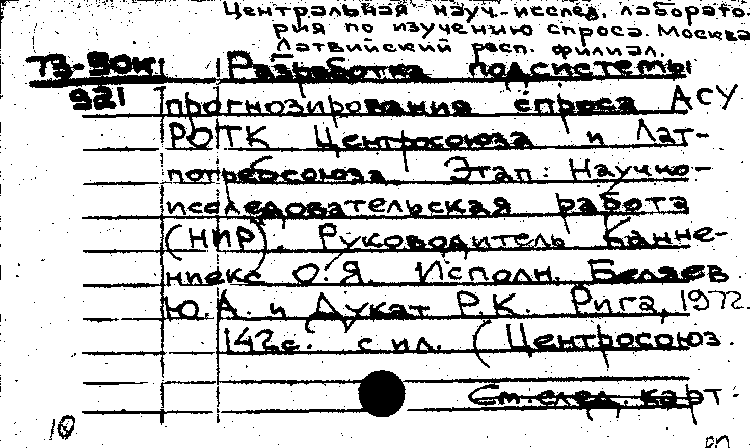 Центральная науч.-исслед. лаборато-
рия по изучению спроса. Москва
Латвийский респ. филиал.
73-5ок Разработка подсистемы
921 прогнозирования спроса АСУ
РОТК Центросоюза и Лат-
потребсоюза. Этап: Научно-
исследовательская работа
(НИР). Руководитель Банне-
ниекс О.Я. Исполн. Беляев
Ю.А. и Дукат Р.К. Рига, 1972.
142с. с ил. (Центросоюз.
См.след. карт.
10